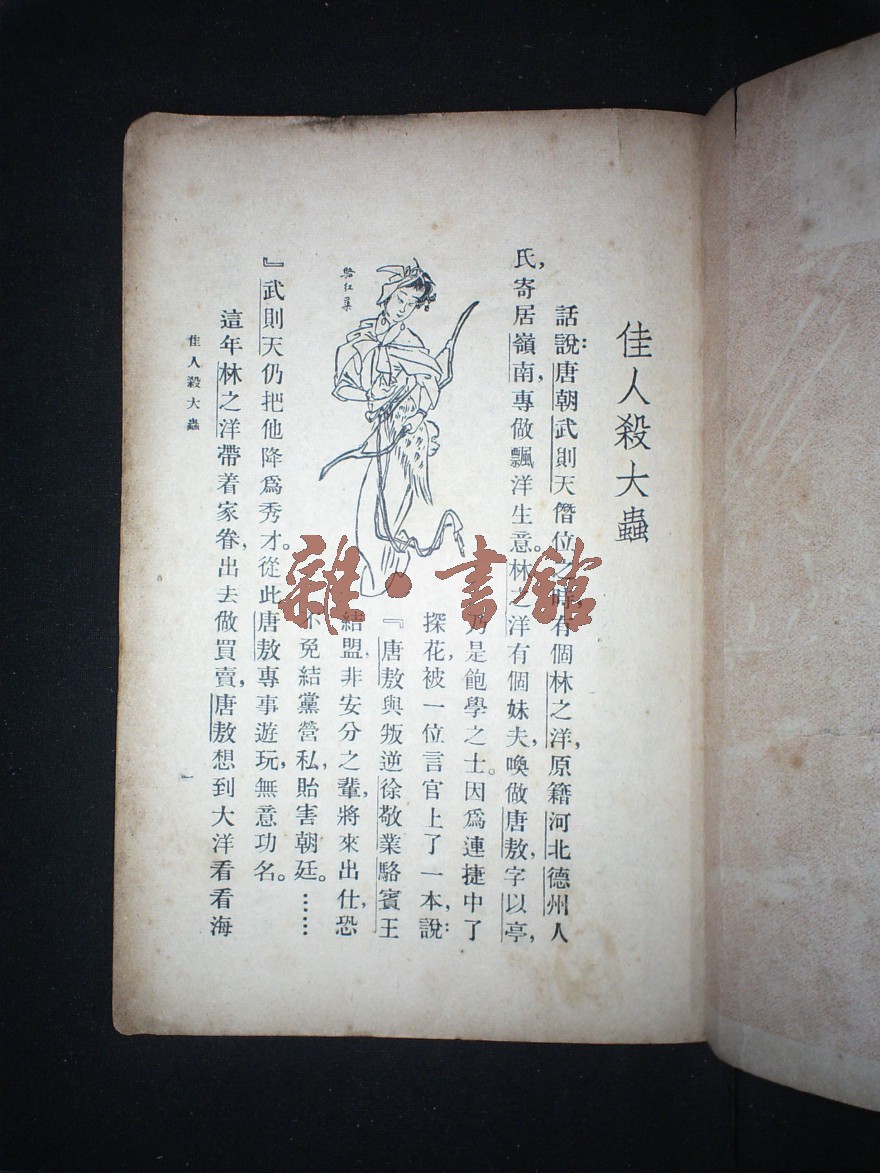 佳人殺大蟲
話說:唐朝武則天僭位之時,有個林之洋,原籍河北德州人
氏,寄居嶺南,專做飄洋生意。林之洋有個妹夫,喚做唐敖,字以亭,
乃是飽學之士。因爲連捷中了
探花,被一位言官上了一本,說:
『唐敖與叛逆徐敬業駱賓王
結盟,非安分之輩,將來出仕,恐
不免結黨營私,貽害朝廷。……
』武則天仍把他降爲秀才。從此唐敖專事遊玩,無意功名。
這年林之洋帶着家眷,出去做買賣,唐敖想到大洋看看海
駱紅蕖
佳人殺大蟲
一
雜·書館